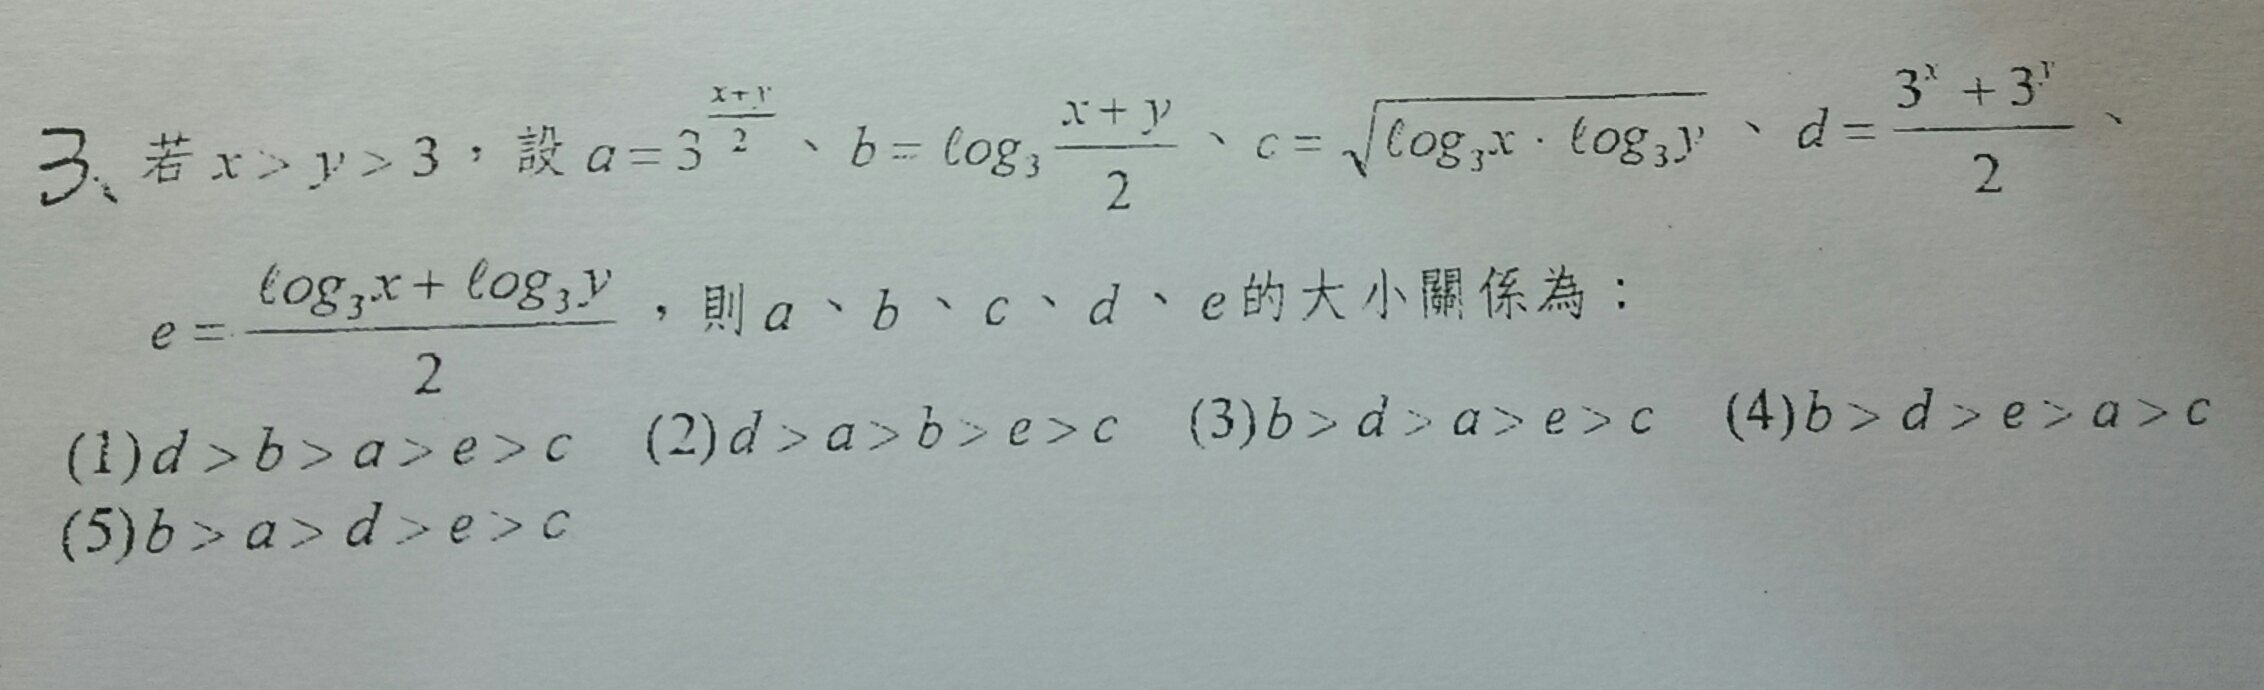 3、若 x > y > 3，設 a = 3^{\frac{x+y}{2}}、b = log₃ \frac{x+y}{2}、c = \sqrt{log₃x · log₃y}、d = \frac{3^x + 3^y}{2}、
e = \frac{log₃x + log₃y}{2}，則 a、b、c、d、e 的大小關係為：
(1) d > b > a > e > c (2) d > a > b > e > c (3) b > d > a > e > c (4) b > d > e > a > c
(5) b > a > d > e > c